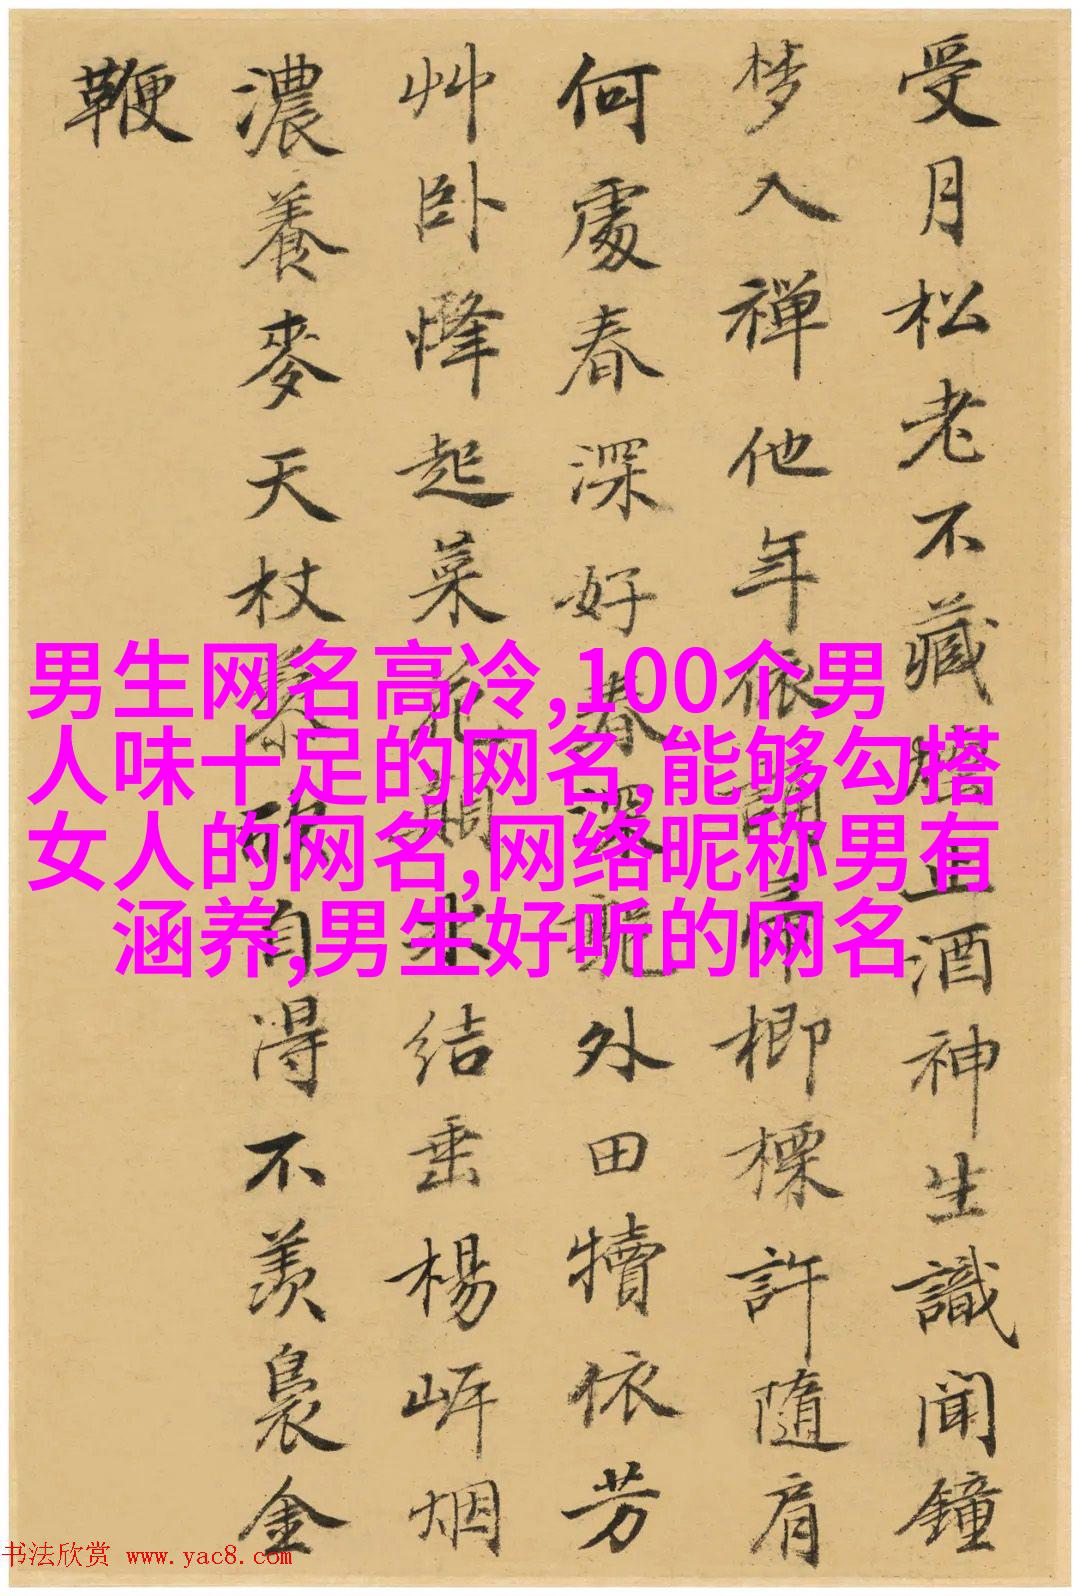 受月松老不藏 止酒神生識聞鐘
梦入禅他年依 帚楖標許隨肩
何處春深好春深 外田犢依芳
艸卧烽起菜花 水结垂楊岍烟
濃養麥天杖 自得不羡裊金
鞭
男生网名高冷,100个男
人味十足的网名,能够勾搭
女人的网名,网络昵称男有
涵养,男生好听的网名
书法欣赏 www.yac8.com